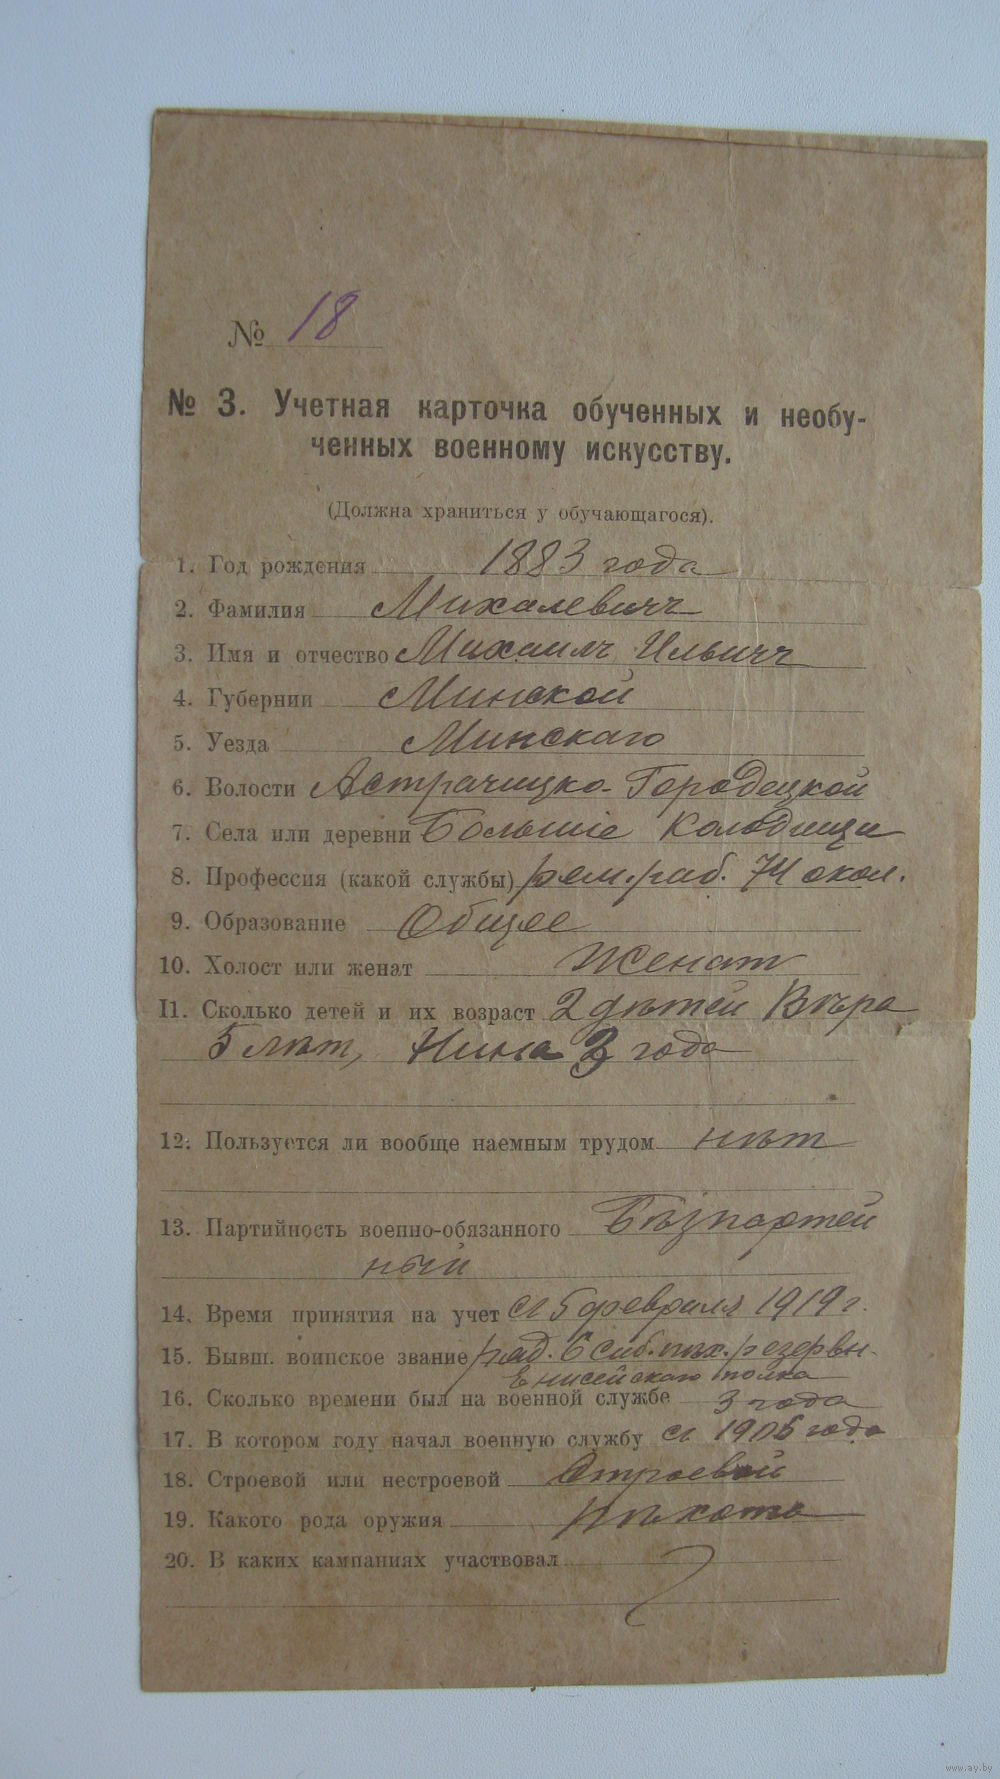 № 18
№ 3. Учетная карточка обученных и необу-
ченных военному искусству.
(Должна храниться у обучающагося).
1. Год рождения 1883 года
2. Фамилия Михалевичъ
3. Имя и отчество Михаилъ Ильичъ
4. Губернии Минской
5. Уезда Минскаго
6. Волости Астрачицко-Городецкой
7. Села или деревни Большіе Колодищи
8. Профессия (какой службы) рем. раб. 74 окол.
9. Образование Общее
10. Холост или женат Женат
11. Сколько детей и их возраст 2 дѣтей Вѣра
5 лѣт, Нина 3 года
12. Пользуется ли вообще наемным трудом нѣт
13. Партийность военно-обязанного Бѣзпартей
ный
14. Время принятия на учет съ 5 февраля 1919 г.
15. Бывш. воинское звание ряд. 6 сиб. пѣх. резервн.
Енисейскаго полка
16. Сколько времени был на военной службе 3 года
17. В котором году начал военную службу съ 1906 года
18. Строевой или нестроевой Строевой
19. Какого рода оружия Пѣхота
20. В каких кампаниях участвовал
www.ay.by